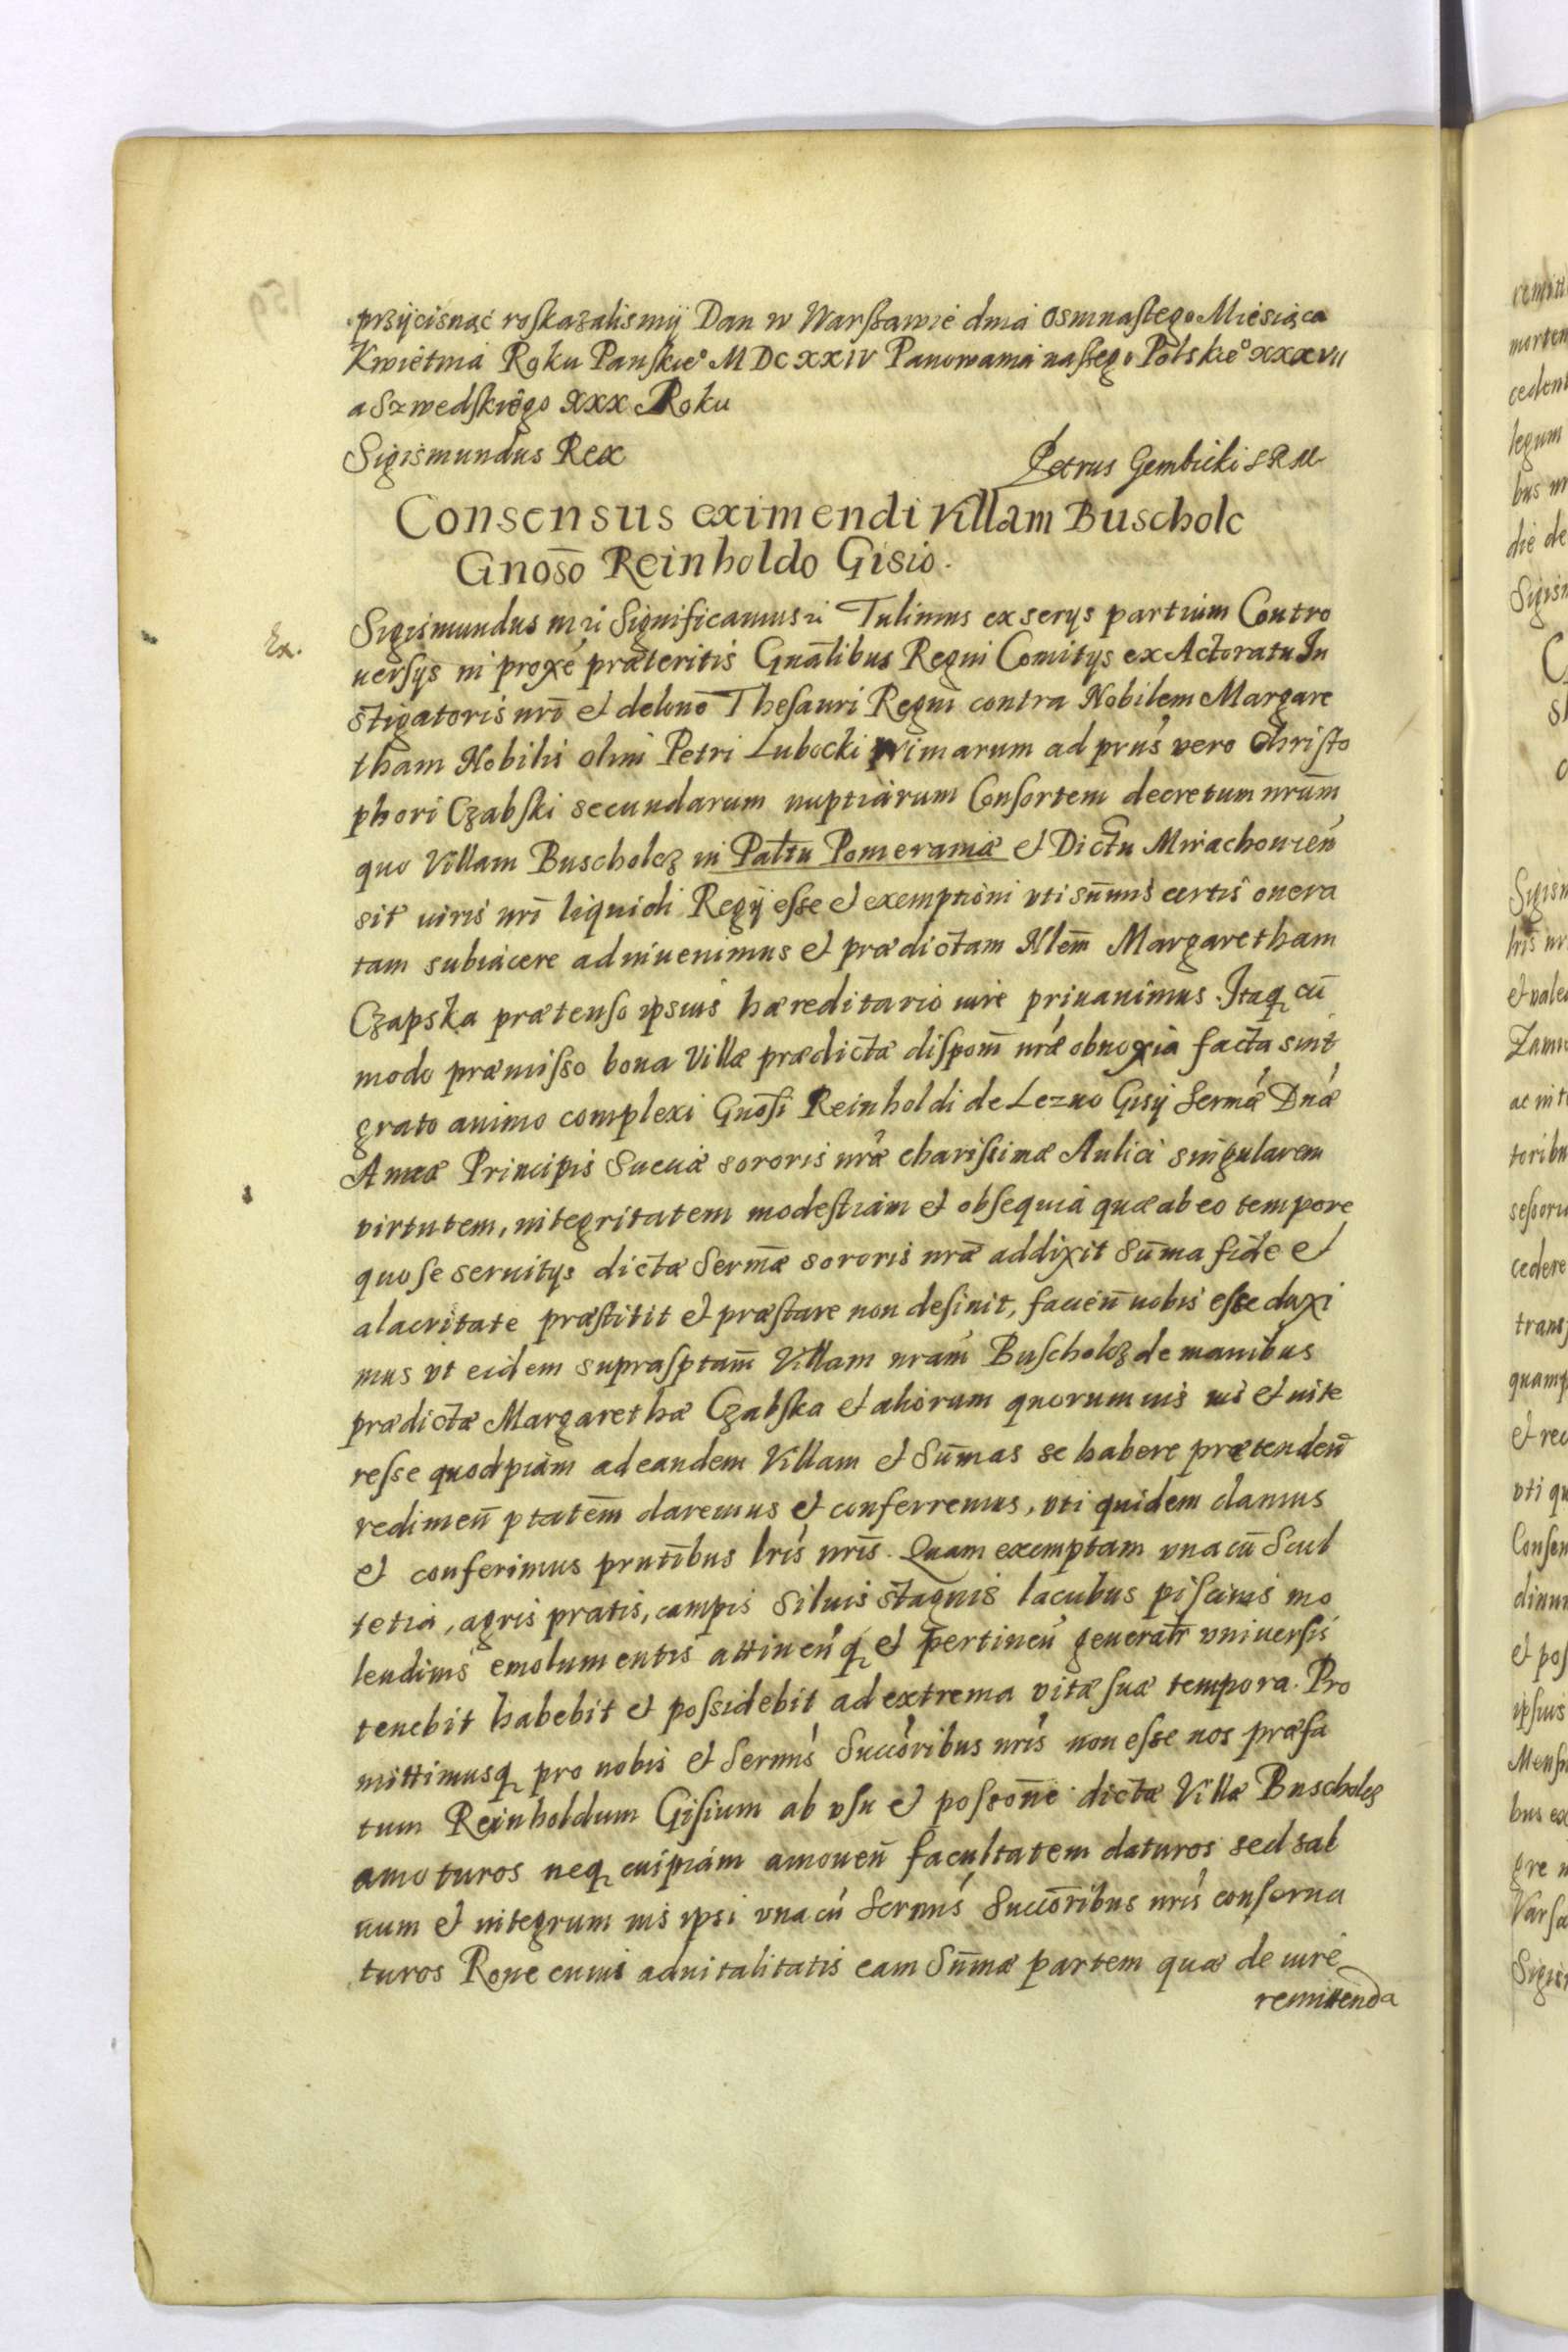 przÿcisnąć roskazalismÿ Dan w Warszawie dnia osmnastego Miesiąca
Kwietnia Roku Panskie° MDCXXIV Panowania naszego Polskie° XXXVII
a Szwedskiego XXX Roku
Sigismundus Rex
Petrus Gembicki SRM
Consensus eximendi Villam Buscholc
Gnoso Reinholdo Gisio.
Ex.
Sigismundus Significamus Tulimus ex serys partium Contro
uersÿs in proxè præteritis Gnalibus Regni Comitys ex Actoratu In
stigatoris nri et delono Thesauri Regni contra Nobilem Margare
tham Nobilis olim Petri Lubocki primarum ad prns vero Christo
phori Czabski secundarum nuptiarum Consortem decretum nrum
quo Villam Buscholcz in Paltu Pomeraniæ et Dictu Mirachouien
sit iuris nri liquidi Regÿ esse et exemptioni vti sumis certis onera
tam subiacere adinuenimus et prædictam Nlem Margaretham
Czapska prætenso ipsius hæreditario iure priuauimus. Itaq cu
modo præmisso bona Villæ prædictæ dispom nræ obnoxia facta sint
grato animo complexi Gnosi Reinholdi de Lezno Gisÿ Sermæ Dnæ
Annæ Principis Sueuiæ sororis nræ charissimæ Aulici singularem
virtutem, integritatem modestiam et obsequia quæ ab eo tempore
quo se seruitys dictæ Sermæ sororis nræ addixit Suma fide et
alacritate præstitit et præstare non desinit, facien nobis esse duxi
mus vt eidem suprasptam Villam nram Buscholcz de manibus
prædictæ Margarethæ Czabska et aliorum quorumuis ius et inte
resse quodpiam ad eandem Villam et Sumas se habere prætenden
redimen ptatem daremus et conferremus, vti quidem damus
et conferimus prntibus lris nris. Quam exemptam vna cu Scul
tetia, agris pratis, campis Siluis stagnis lacubus piscinis mo
lendinis emolumentis attinenq et pertinen generatr vniuersis
tenebit habebit et possidebit ad extrema vitæ suæ tempora. Pro
mittimusq pro nobis et Sermis Succoribus nris non esse nos præfa
tum Reinholdum Gisium ab vsu et possone dictæ Villæ Buscholcz
amoturos neq cuipiam amouen facultatem daturos sed sal
uum et integrum ius ipsi vna cu Sermis Succoribus nris conserua
turos Rone enim aduitalitatis eam Sumæ partem quæ de iure
remittenda